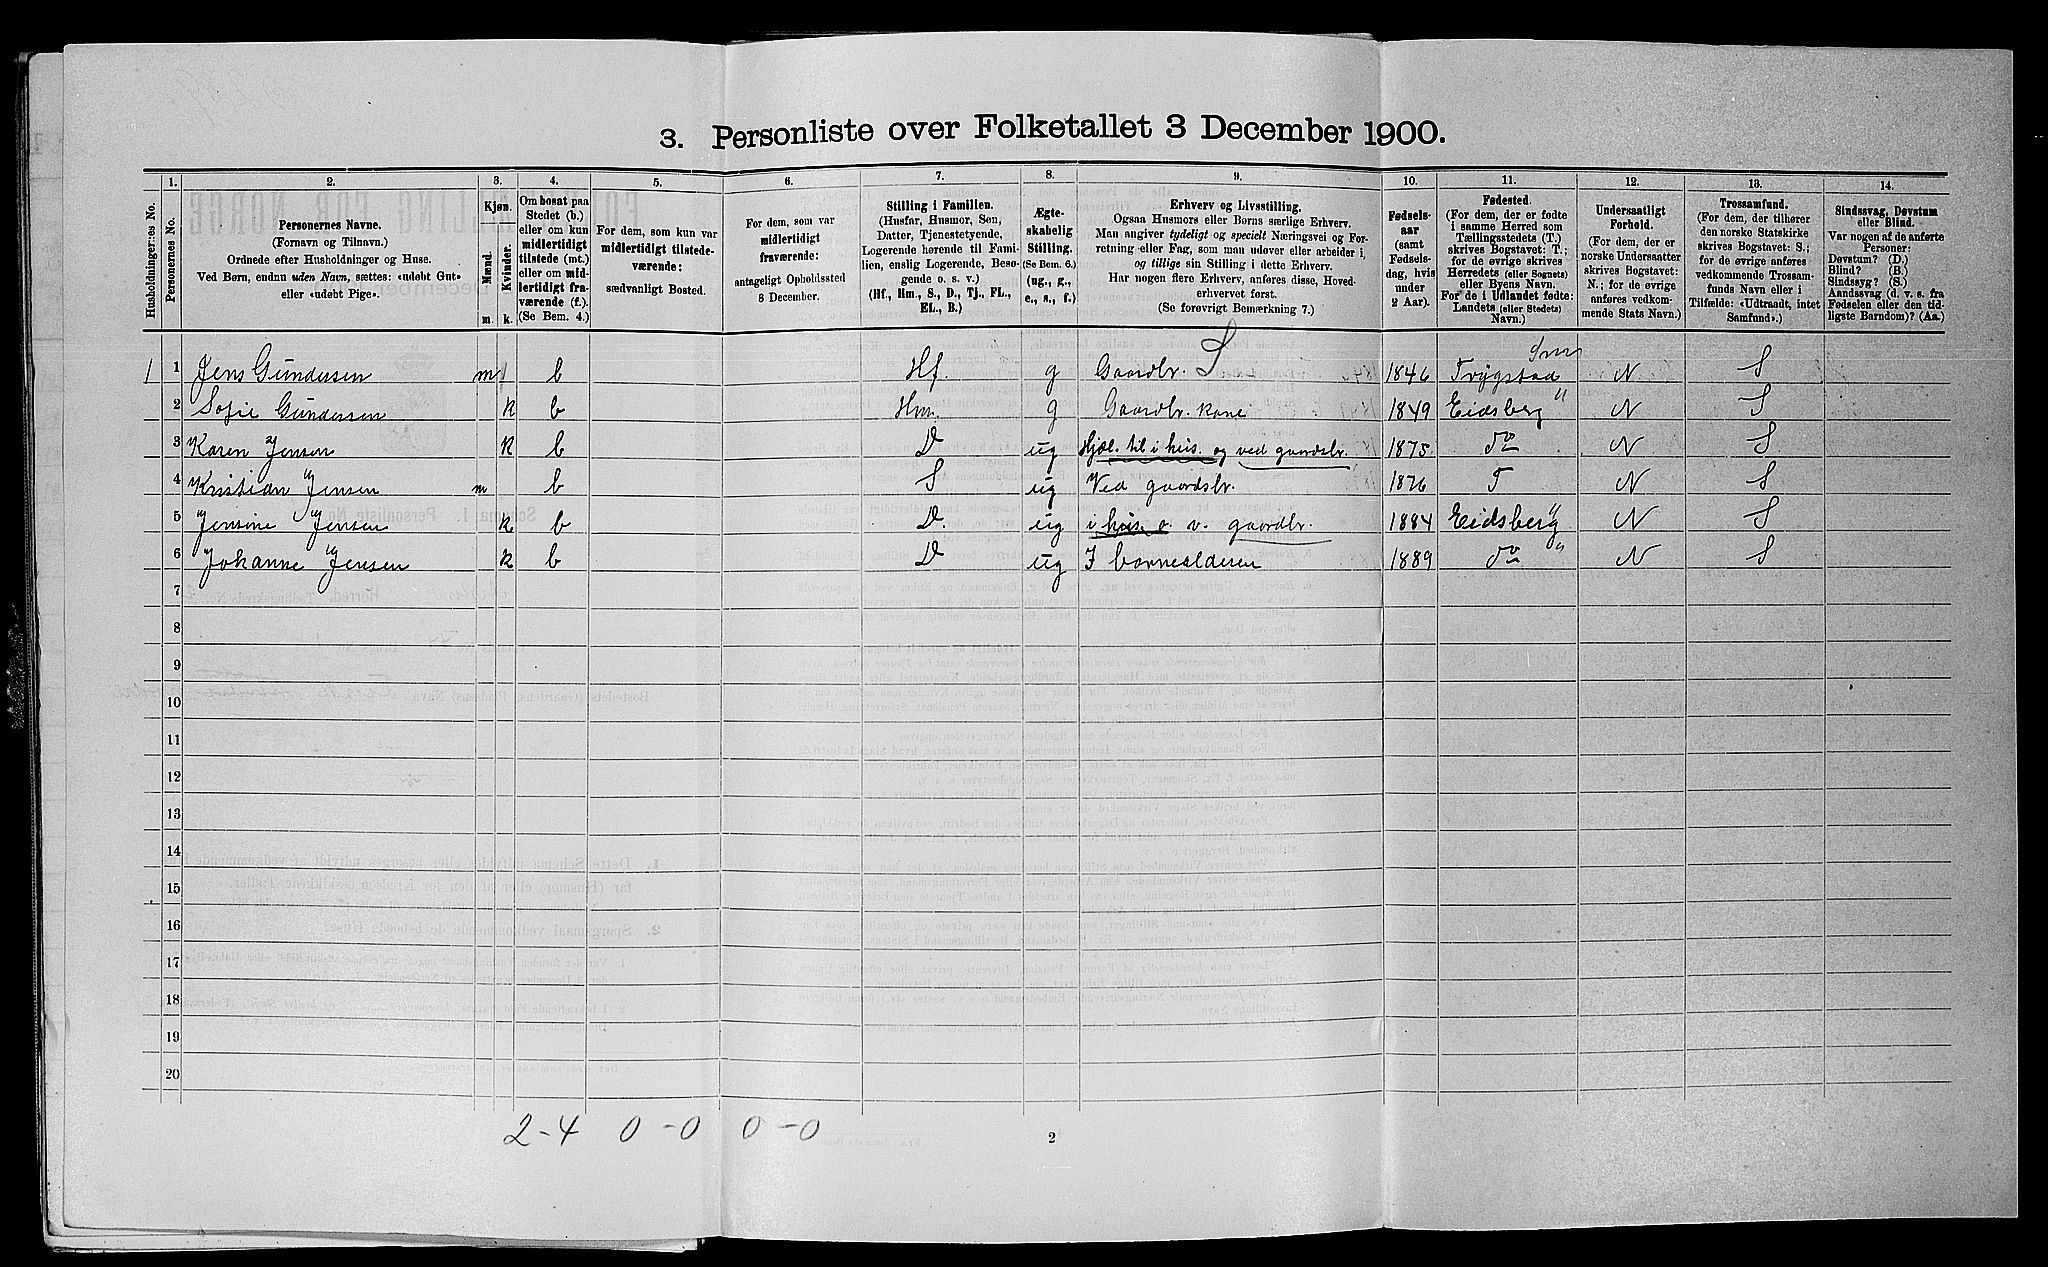 3. Personliste over Folketallet 3 December 1900.
Husholdningernes No.
1.
Personernes No.
2.
Personernes Navne.
(Fornavn og Tilnavn.)
Ordnede efter Husholdninger og Huse.
Ved Børn, endnu uden Navn, sættes: «udøbt Gut»
eller «udøbt Pige».
3.
Kjøn.
Mænd.
Kvinder.
m.
k.
4.
Om bosat paa
Stedet (b.)
eller om kun
midlertidigt
tilstede (mt.)
eller om mid-
lertidigt fra-
værende (f.).
(Se Bem. 4.)
5.
For dem, som kun var
midlertidigt tilstede-
værende:
sædvanligt Bosted.
6.
For dem, som var
midlertidigt
fraværende:
antageligt Opholdssted
3 December.
7.
Stilling i Familien.
(Husfar, Husmor, Søn,
Datter, Tjenestetyende,
Logerende hørende til Fami-
lien, enslig Logerende, Besø-
gende o. s. v.)
(Hf., Hm., S., D., Tj., FL.,
EL., B.)
8.
Ægte-
skabelig
Stilling.
(Se Bem. 6.)
(ug., g.,
e., s., f.)
9.
Erhverv og Livsstilling.
Ogsaa Husmors eller Børns særlige Erhverv.
Man angiver tydeligt og specielt Næringsvei og For-
retning eller Fag, som man udøver eller arbeider i,
og tillige sin Stilling i dette Erhverv.
Har nogen flere Erhverv, anføres disse, Hoved-
erhvervet først.
(Se forøvrigt Bemærkning 7.)
10.
Fødsels-
aar
(samt
Fødsels-
dag, hvis
under
2 Aar).
11.
Fødested.
(For dem, der er fødte
i samme Herred som
Tællingsstedets (T.)
skrives Bogstavet: T.;
for de øvrige skrives
Herredets (eller Sognets)
eller Byens Navn.
For de i Udlandet fødte:
Landets (eller Stedets)
Navn.)
12.
Undersaatligt
Forhold.
(For dem, der er
norske Undersaatter
skrives Bogstavet:
N.; for de øvrige
anføres vedkom-
mende Stats Navn.)
13.
Trossamfund.
(For dem, der tilhører
den norske Statskirke
skrives Bogstavet: S.;
for de øvrige anføres
vedkommende Trossam-
funds Navn eller i
Tilfælde: «Udtraadt, intet
Samfund».)
14.
Sindssvag, Døvstum
eller Blind.
Var nogen af de anførte
Personer:
Døvstum? (D.)
Blind? (B.)
Sindssyg? (S.)
Aandssvag (d. v. s. fra
Fødselen eller den tid-
ligste Barndom)? (Aa.)
1 1 Jens Gundersen m b Hf. g Gaardbr. S 1846 Trygstad N S
2 Sofie Gundersen k b Hm. g Gaardbr. kone 1849 Eidsberg " N S
3 Karen Jensen k b D ug Hjæl. til i hus. og ved gaardsbr. 1875 do N S
4 Kristian Jensen m b S ug Ved gaardsbr. 1876 T N S
5 Jensine Jensen k b D ug i hus. o. v. gaardbr. 1884 Eidsberg " N S
6 Johanne Jensen k b D ug I barnealderen 1889 do " N S
7
8
9
10
11
12
13
14
15
16
17
18
19
20
2-4 0-0 0-0
2